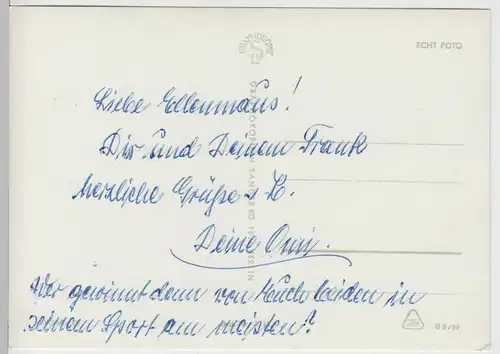 ECHT FOTO
Liebe Ellenmaus!
Dir und Deinem Frank
herzliche Grüße
Deine Omi.
Wer gewinnt denn von Euch beiden in
seinem Sport am meisten?